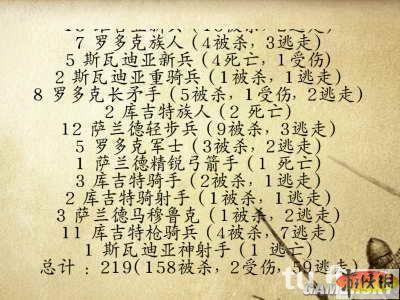 7 罗多克族人（4被杀，3逃走）
5 斯瓦迪亚新兵（4死亡，1受伤）
2 斯瓦迪亚重骑兵（1被杀，1逃走）
8 罗多克长矛手（5被杀，1受伤，2逃走）
2 库吉特族人（2 死亡）
12 萨兰德轻步兵（9被杀，3逃走）
5 罗多克军士（3被杀，2逃走）
1 萨兰德精锐弓箭手（1 死亡）
3 库吉特骑手（2被杀，1逃走）
2 库吉特骑射手（1被杀，1逃走）
3 萨兰德马穆鲁克（1被杀，2逃走）
11 库吉特枪骑兵（4被杀，7逃走）
1 斯瓦迪亚神射手（1 逃亡）
总计 ：219(158被杀，2受伤，59逃走)